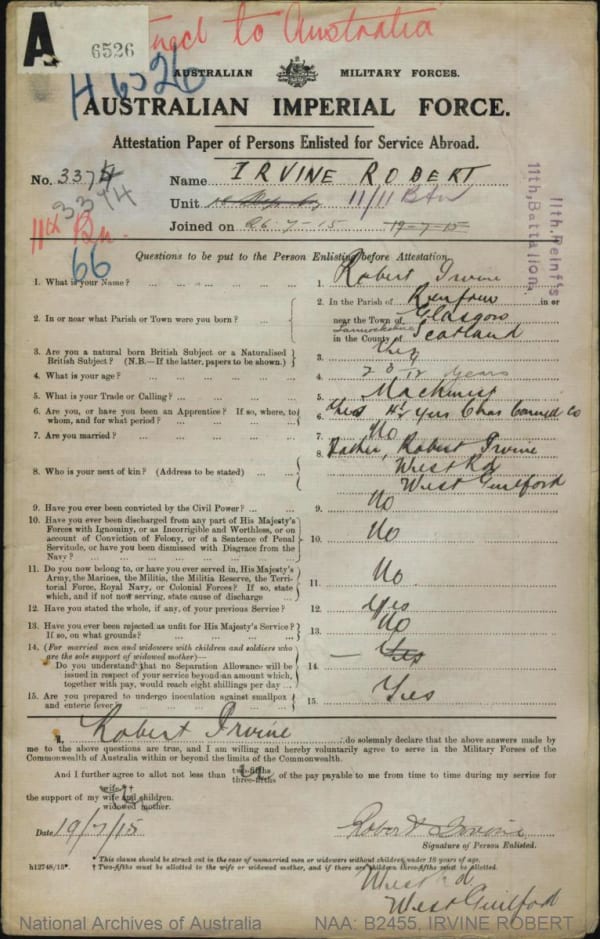 A
6526
to Australia
H 6526
AUSTRALIAN MILITARY FORCES.
AUSTRALIAN IMPERIAL FORCE.
Attestation Paper of Persons Enlisted for Service Abroad.
No. 3374 Name IRVINE ROBERT
3374
Unit 11/11 Btn
11th Bn.
Joined on 26-7-15 19-7-15
66
11th. Reinf's
11th, Battalion,
Questions to be put to the Person Enlisting before Attestation.
1. What is your Name? ... 1. Robert Irvine
2. In or near what Parish or Town were you born? ... 2. In the Parish of Renfrew in or
near the Town of Glasgow
in the County of Lanarkshire Scotland
3. Are you a natural born British Subject or a Naturalised
British Subject? (N.B.—If the latter, papers to be shown.) 3. Yes
4. What is your age? ... 4. 20 Years
5. What is your Trade or Calling? ... 5. Machinist
6. Are you, or have you been an Apprentice? If so, where, to
whom, and for what period? ... 6. Yes 4½ yrs Chas Co
7. Are you married? ... 7. No
8. Who is your next of kin? (Address to be stated) ... 8. Father, Robert Irvine
West Rd
West Guilford
9. Have you ever been convicted by the Civil Power? ... 9. No
10. Have you ever been discharged from any part of His Majesty's
Forces with Ignominy, or as Incorrigible and Worthless, or on
account of Conviction of Felony, or of a Sentence of Penal
Servitude, or have you been dismissed with Disgrace from the
Navy? ... 10. No
11. Do you now belong to, or have you ever served in, His Majesty's
Army, the Marines, the Militia, the Militia Reserve, the Terri-
torial Force, Royal Navy, or Colonial Forces? If so, state
which, and if not now serving, state cause of discharge 11. No
12. Have you stated the whole, if any, of your previous Service? 12. Yes
13. Have you ever been rejected as unfit for His Majesty's Service?
If so, on what grounds? 13. No
14. (For married men and widowers with children and soldiers who
are the sole support of widowed mother)—
Do you understand that no Separation Allowance will be
issued in respect of your service beyond an amount which,
together with pay, would reach eight shillings per day ... 14. — Yes
15. Are you prepared to undergo inoculation against smallpox
and enteric fever? 15. Yes
I, Robert Irvine do solemnly declare that the above answers made by
me to the above questions are true, and I am willing and hereby voluntarily agree to serve in the Military Forces of the
Commonwealth of Australia within or beyond the limits of the Commonwealth.
And I further agree to allot not less than two-fifths three-fifths of the pay payable to me from time to time during my service for
wife
the support of my wife and children.
widowed mother.
Date 19/7/15 Robert Irvine
Signature of Person Enlisted.
h12748/15*.
* This clause should be struck out in the case of unmarried men or widowers without children under 18 years of age.
† Two-fifths must be allotted to the wife or widowed mother, and if there are children three-fifths must be allotted.
West Rd
West Guilford
National Archives of Australia NAA: B2455, IRVINE ROBERT